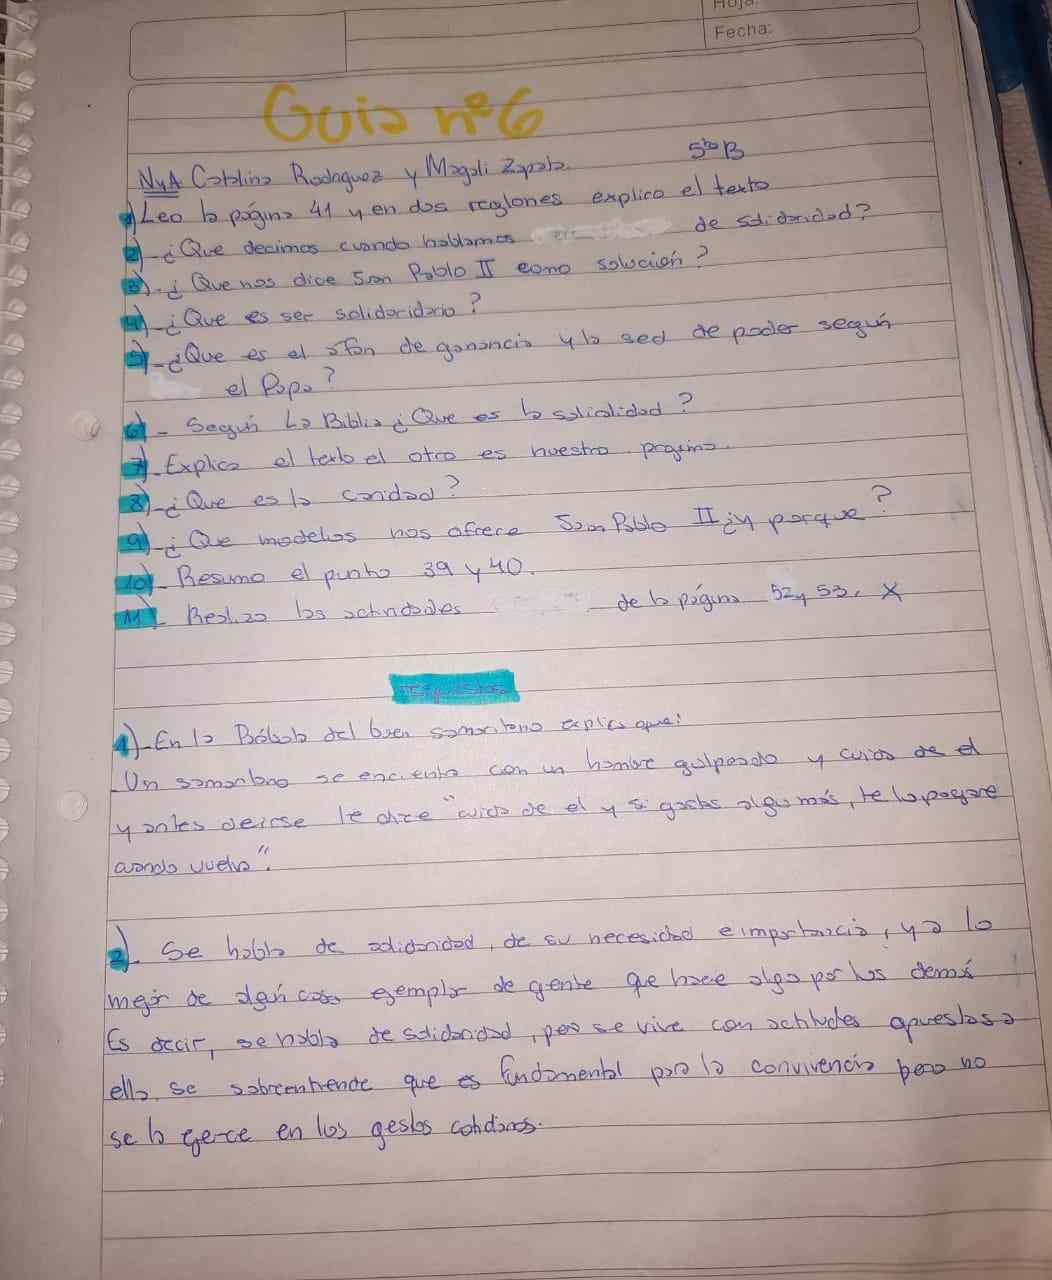 Hoja:
Fecha:
Guia nº6
NyA Catalina Rodriguez y Magali Zapata. 5to B
1) Leo la página 41 y en dos reglones explico el texto
2)-¿Que decimos cuando hablamos de solidaridad?
3)-¿Que nos dice Juan Pablo II como solución?
4)-¿Que es ser solidaridario?
5)-¿Que es el afan de ganancia y la sed de poder según
el Papa?
6)- Según La Biblia ¿Que es la solialidad?
7)- Explica el texto el otro es nuestro progimo.
8)-¿Que es la caridad?
9)-¿Que modelos nos ofrece Juan Pablo II ¿y porque?
10) Resumo el punto 39 y 40.
11)- Realizo las actividades de la página 52y 53. X
1)-En la Párabola del buen samaritano explica que:
Un samaritano se encuentra con un hombre golpeado y cuida de el
y antes deirse le dice "cuida de el y si gastas algo más, te lo pagare
cuando vuelva".
2)- Se habla de solidaridad, de su necesidad e importancia, y a lo
mejór de algún caso ejemplar de gente que hace algo por los demás
Es decir, se habla de solidaridad, pero se vive con actitudes apuestas a
ella, se sobreentiende que es fundamental para la convivencia pero no
se la gerce en los gestos cotidianos.